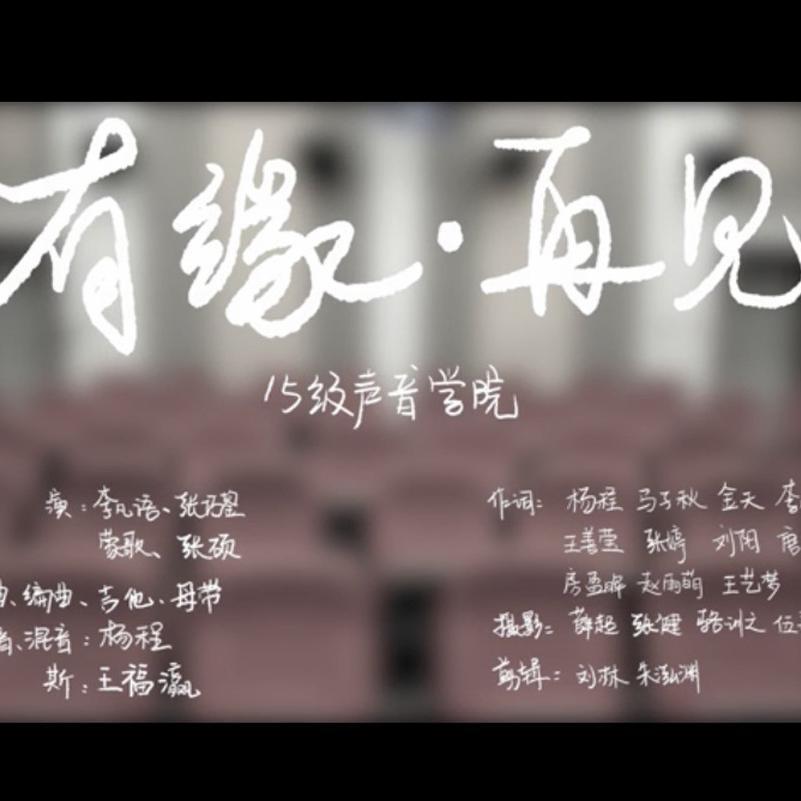 有缘·再见
15级声音学院
演：李凡语、张
蒙歌、张硕
曲、编曲、吉他、母带
音、混音：杨程
斯：王福瀛
作词：杨程 马子秋 金天 李
王善莹 张婷 刘阳 唐
房盈 赵丽萌 王艺梦
摄影：薛超 张健 骆训之 伍
剪辑：刘林 朱泓渊